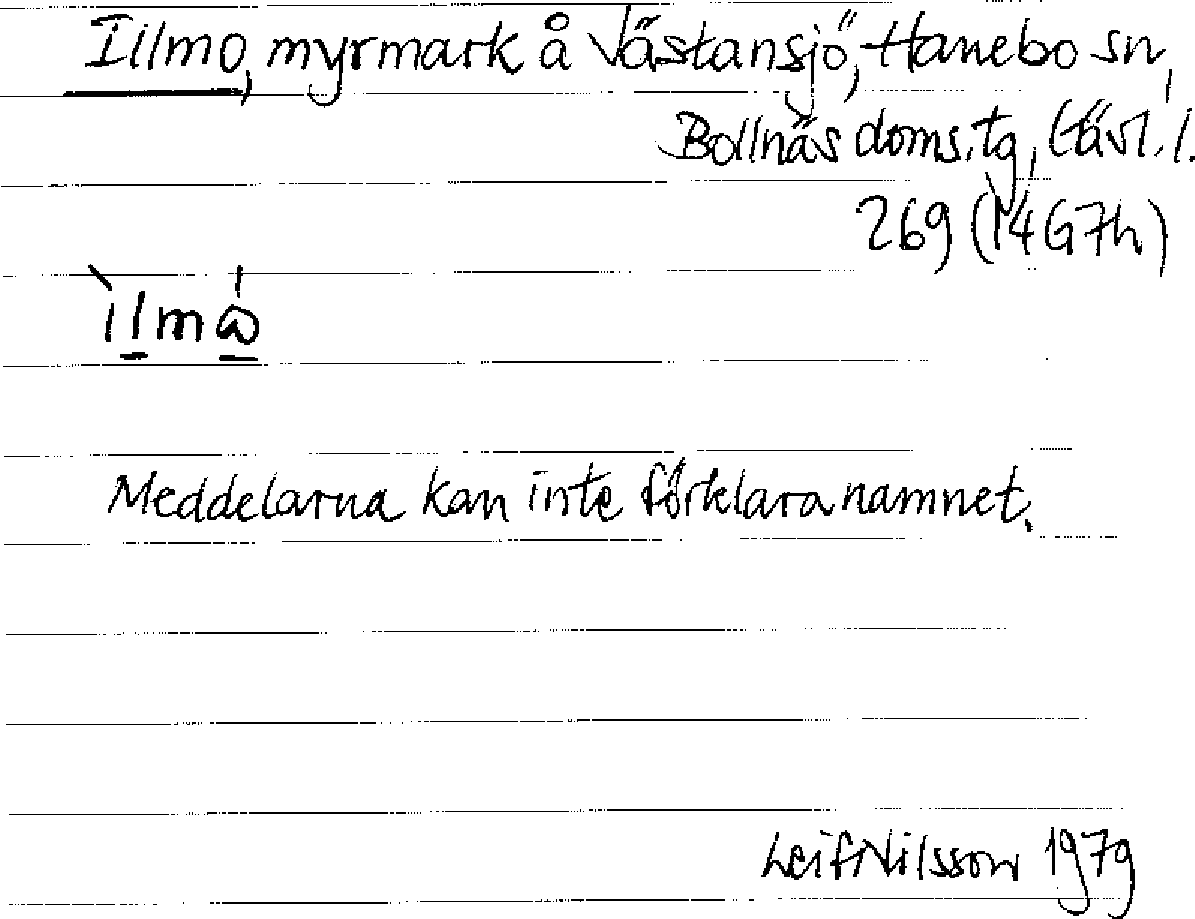 Illmo, myrmark å Västansjö, Hanebo sn,
Bollnäs doms.tg, Gävl. l.
269 (14G7h)
ìlmω̊
Meddelarna kan inte förklara namnet.
Leif Nilsson 1979